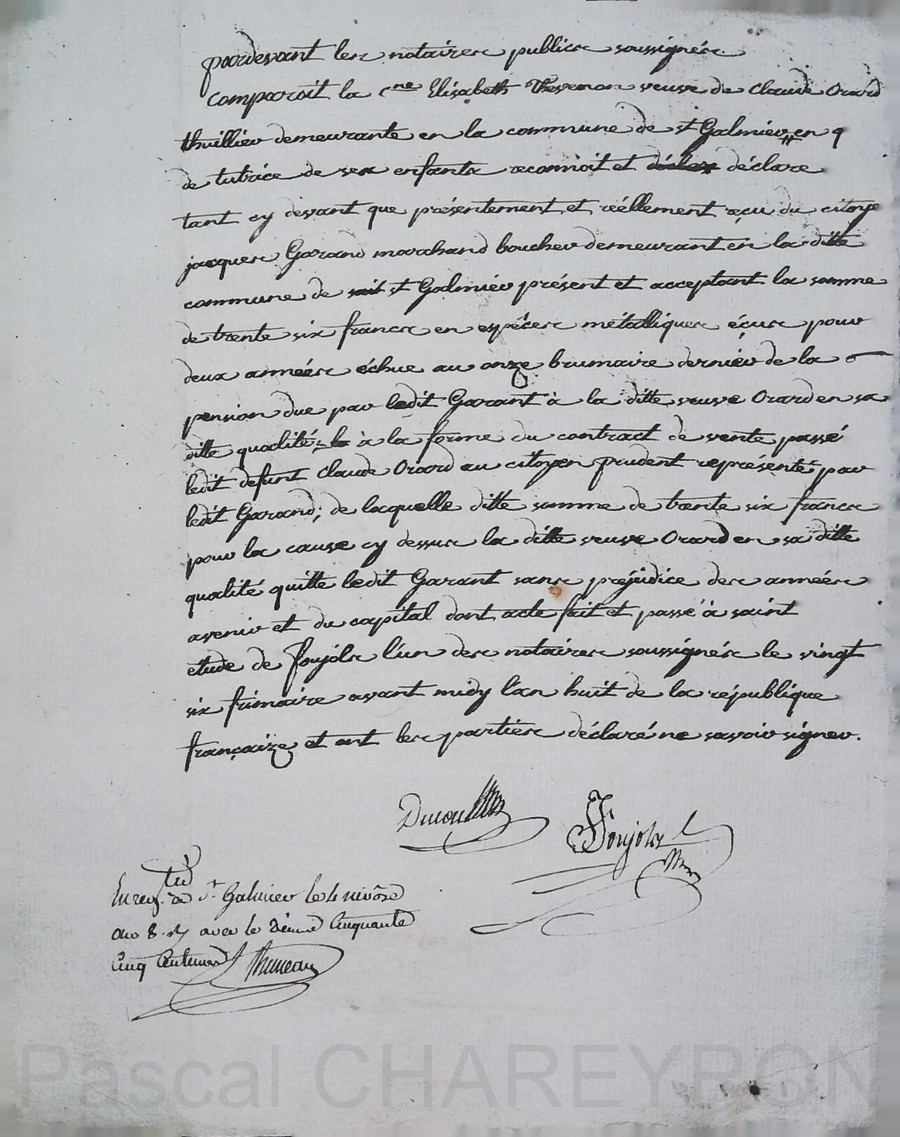 pardevant les notaires publics soussignés
comparoit la cne Elisabeth Thevenon veuve de Claude Orard
thuillier demeurante en la commune de st Galmier en q
de tutrice de ses enfants reconnoit et déclare déclare
tant cy devant que présentement et réellement reçu du citoye
jacques Garand marchand boucher demeurant en la ditte
commune de st Galmier présent et acceptant la somme
de trente six francs en espéces métalliques écus pour
deux années échue au onze brumaire dernier de la
pension due par ledit Garant à la ditte veuve Orard en sa
ditte qualité à la forme du contract de vente passé
ledit defunt Claude Orard au citoyen prudent représenté par
ledit Garand; de laquelle ditte somme de trente six francs
pour la cause cy dessus la ditte veuve Orard en sa ditte
qualité quitte ledit Garant sans préjudice des années
avenir et du capital dont acte fait et passé à saint
etude de foujols l'un des notaires soussignés le vingt
six frimaire avant midy l'an huit de la république
françaize et ont les parties déclaré ne savoir signer.
foujols
Enreg. à St Galmier le 4 nivôse
an 8. avec le dixme Cinquante
Cinq Centimes
Pascal CHAREYRON